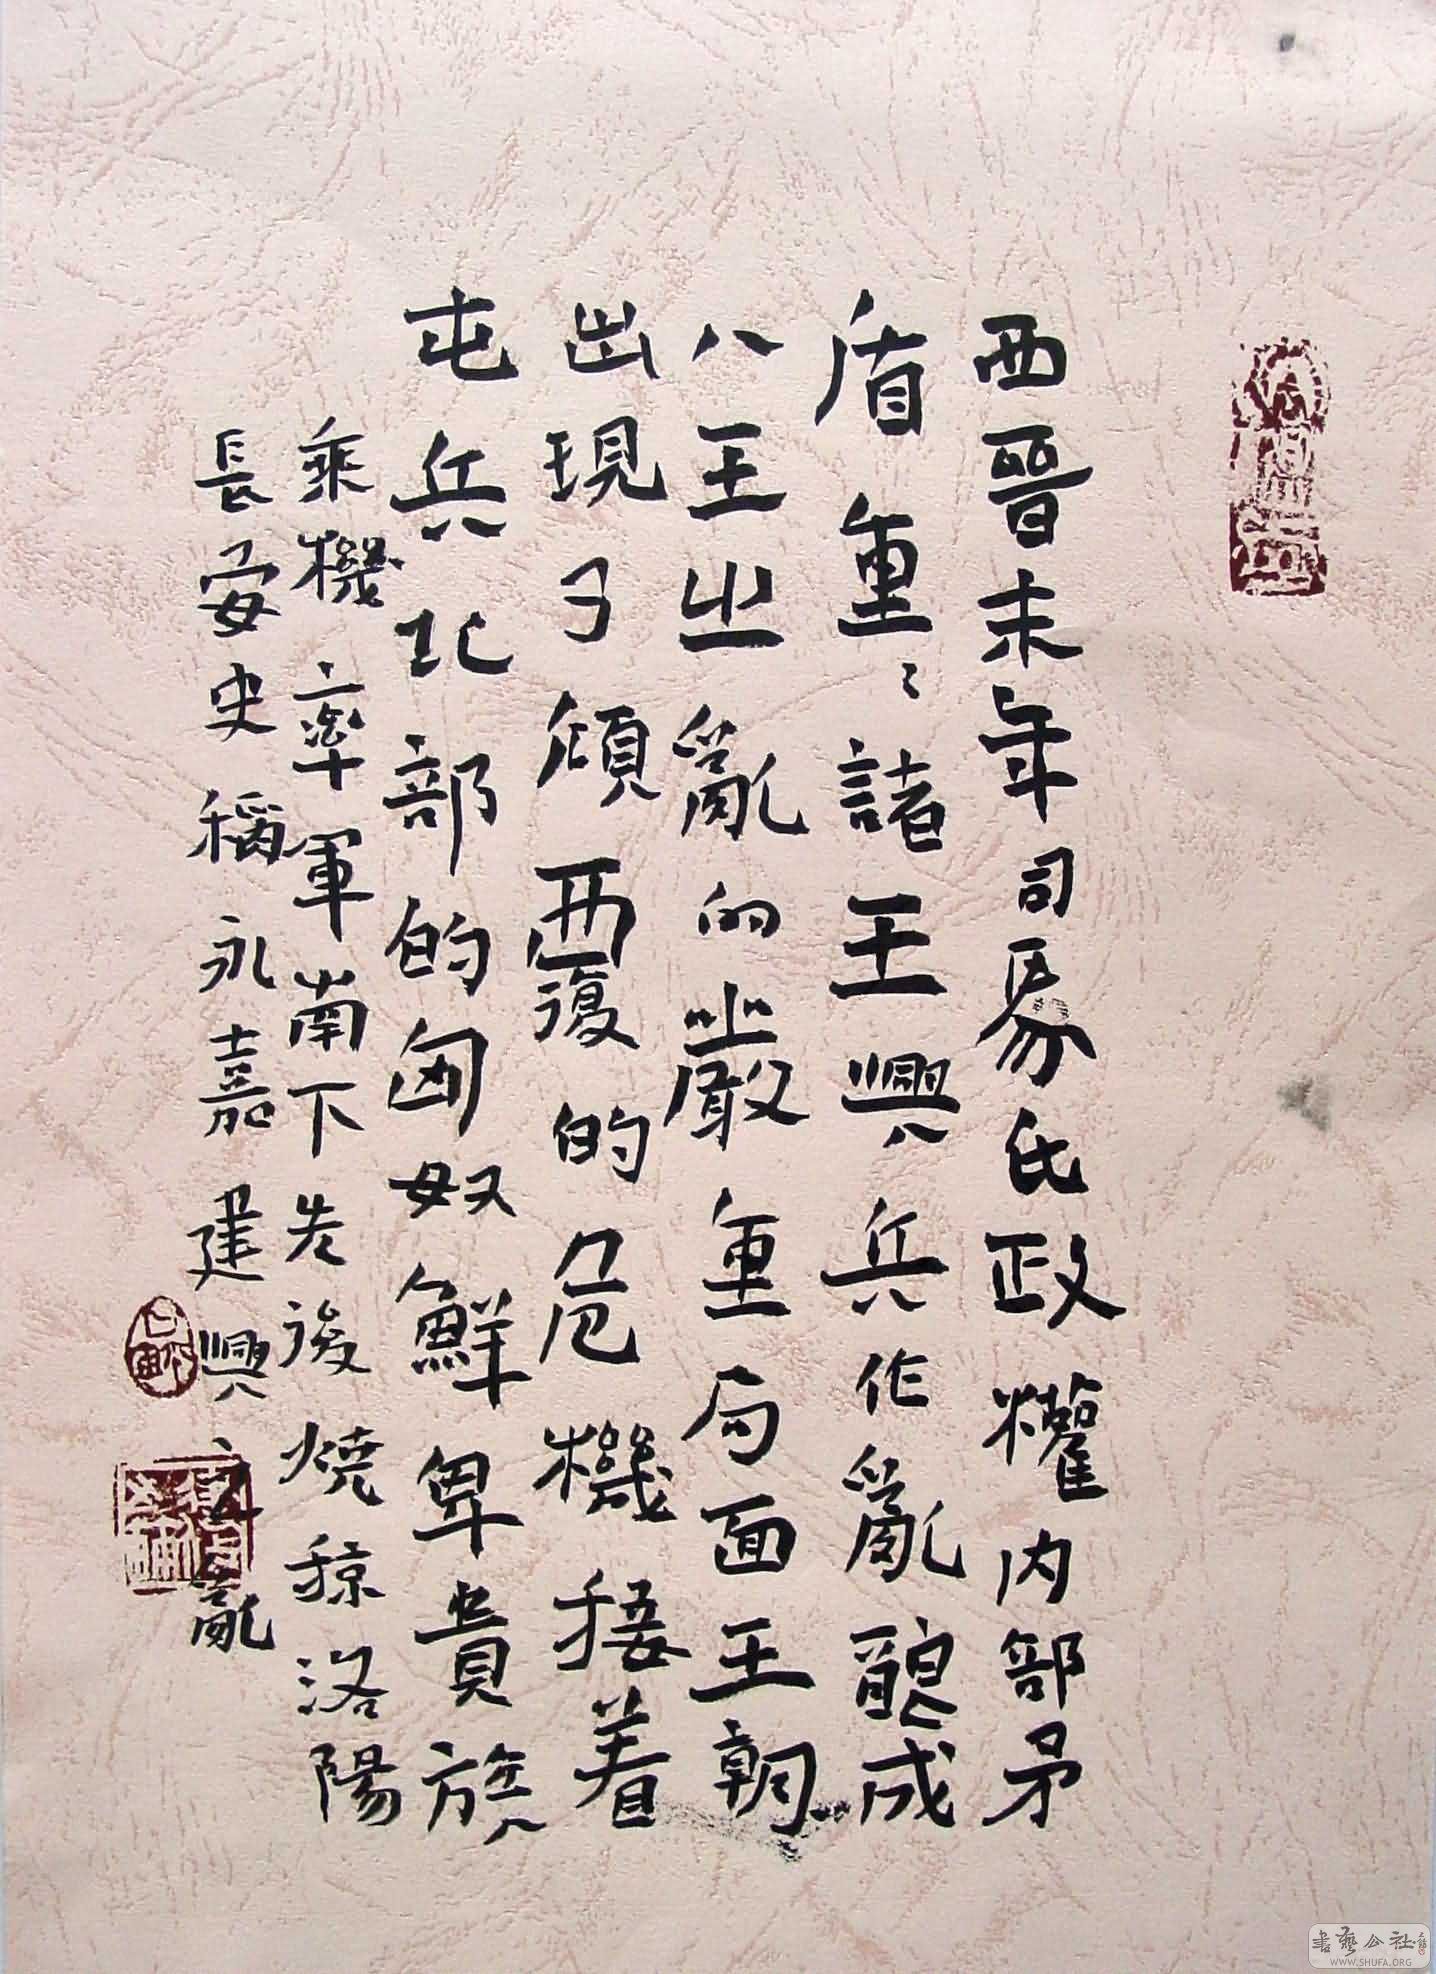 西晉末年司馬氏政權內部矛
盾重〻諸王興兵作亂釀成
八王之亂的嚴重局面王朝
出現了傾覆的危機接着
屯兵北部的匈奴鮮卑貴族
乘機率軍南下先後燒掠洛陽
長安史稱永嘉建興之亂
書藝公社
WWW.SHUFA.ORG